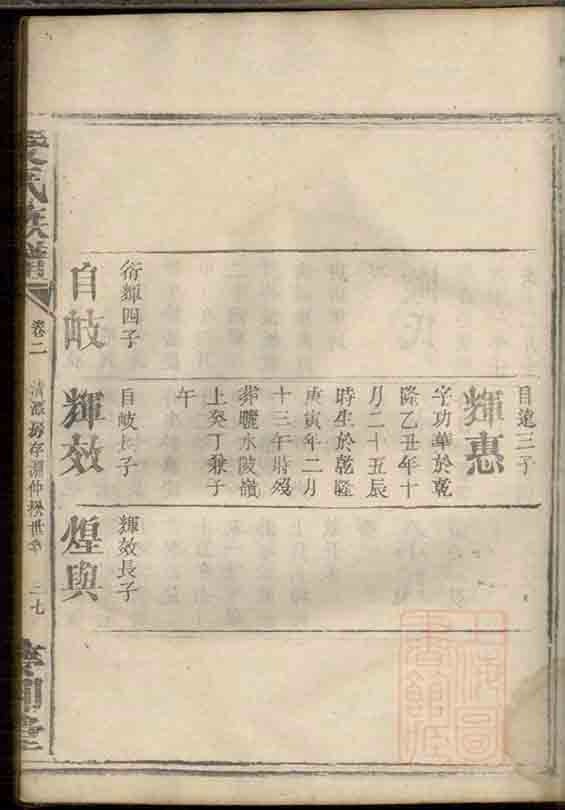 衍輝四子
自岐
自遠三子
輝惠
字功華於乾
隆乙丑年十
月二十五辰
時生於乾隆
庚寅年二月
十三午時歿
葬曬水陵嶺
上癸丁兼子
午
自岐長子
輝效
輝效長子
煌與
氏族譜
卷二
二七
上海圖書館藏